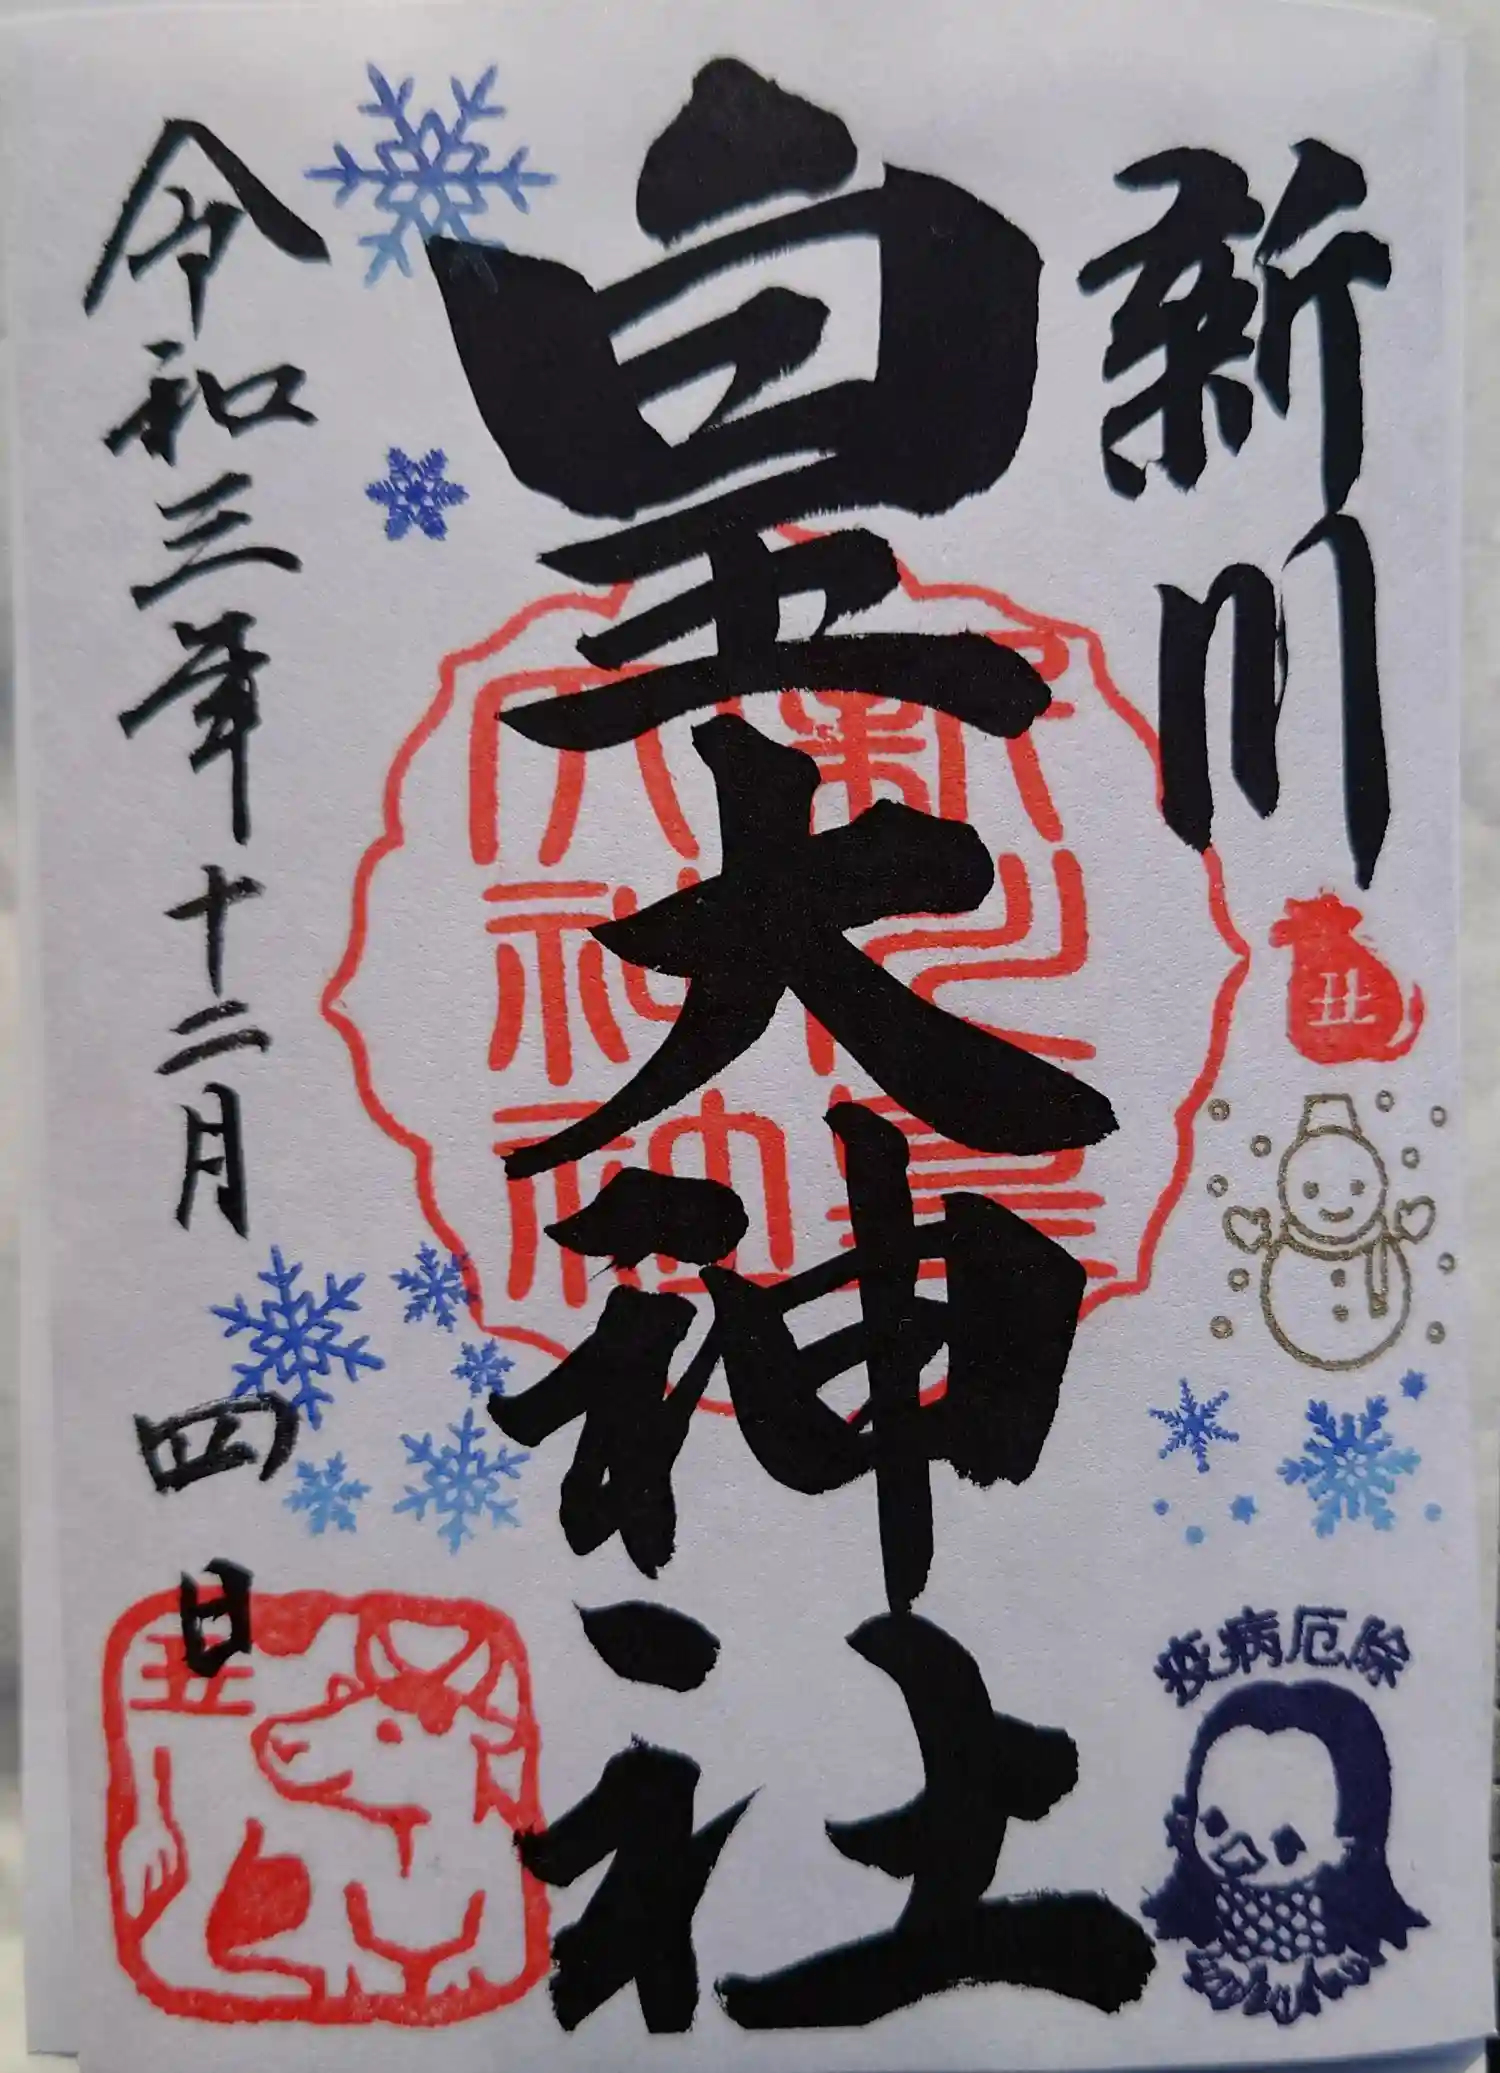 新川
皇大神社
令和三年十二月四日
丑
疫病厄除
丑
新川皇
大神社